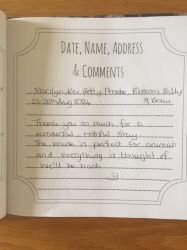 DATE, NAME, ADDRESS
& COMMENTS
Betty, Phoebe, Blossom, Billy
& Beau
Thank you so much for a
wonderful, restful stay.
The house is perfect for
and everything is thought of
We'll be back